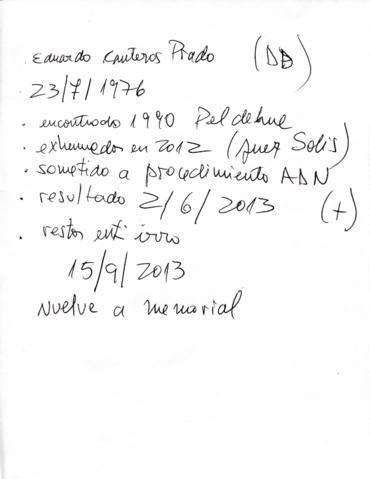 . Eduardo Canteros Prado (DD)
. 23/7/1976
. encontrado 1990 Peldehue
. exhumados en 2012 (Juez Solis)
. sometido a procedimiento ADN
. resultado 2/6/2013 (+)
. restos
15/9/2013
Nuelve a memorial